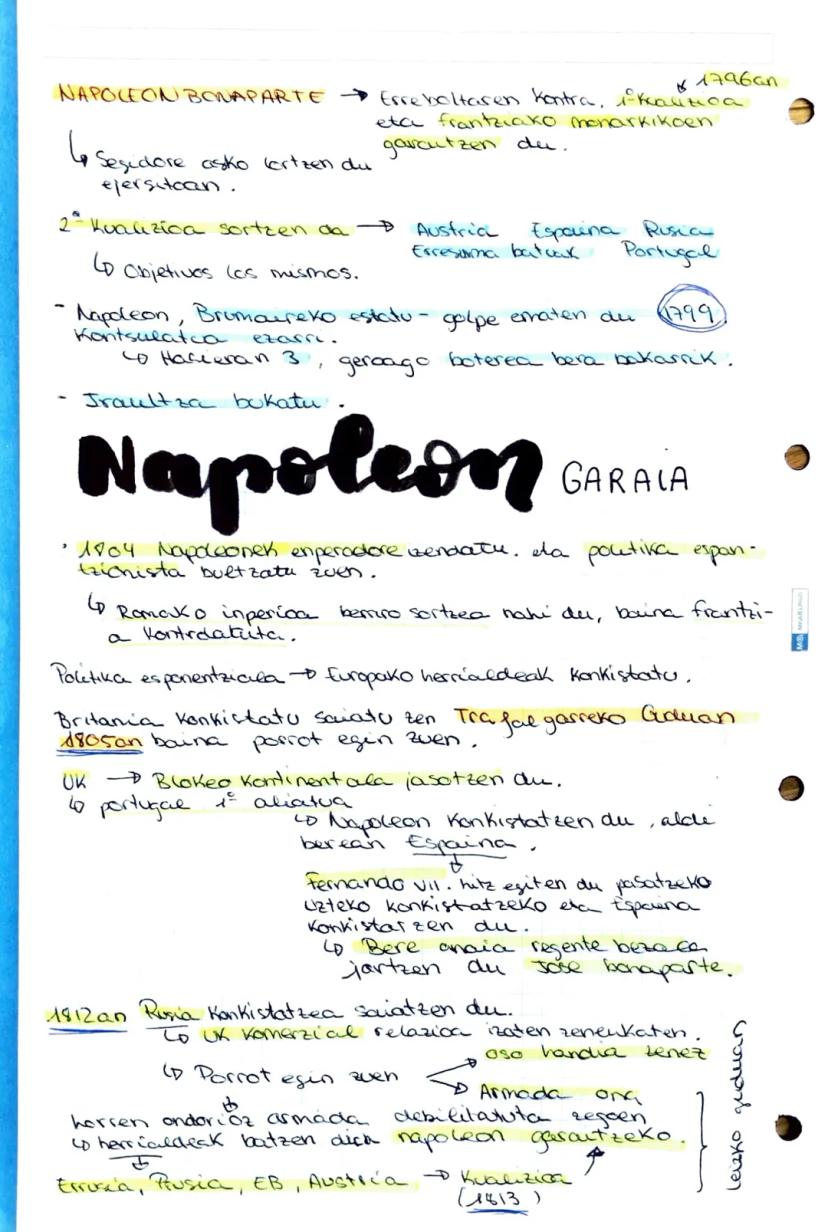 1796an
NAPOLEON BONAPARTE → Erreboltaren kontra, 1º Koalizioa
eta frantziako monarkikoen
garaitzen du.
↳ Segidore asko lortzen du
ejersitoan.
2º Koalizioa sortzen da → Austria Espaina Rusia
Erresuma batuak Portugal
↳ Objetivos los mismos.
- Napoleon, Brumaireko estatu-golpe ematen du 1799
Kontsulatua ezarri.
↳ Hasieran 3, geroago boterea bera bakarrik.
- Iraultza bukatu.
Napoleon GARAIA
· 1804 Napoleonek enperadore izendatu. eta politika espan-
tzionista bultzatu zuen.
↳ Romako inperioa berriro sortzea nahi du, baina frantzi-
a kontrolatuta.
Politika esponentziala → Europako herrialdeak konkistatu.
Britania konkistatu saiatu zen Trafalgarreko Guduan
1805an baina porrot egin zuen.
UK → Blokeo kontinentala jasotzen du.
↳ portugal 1º aliatua
↳ Napoleon konkistatzen du, aldi
berean Espaina.
Fernando VII. hitz egiten du pasatzeko
uzteko konkistatzeko eta Espaina
konkistatzen du.
↳ Bere anaia regente bezala
jartzen du Jose bonaparte.
1812an Rusia konkistatzea saiatzen du.
↳ UK komerzial relazioa izaten zeneukaten.
oso handia zenez
↳ Porrot egin zuen
Armada ona
horren ondorioz armada debilitatuta zegoen
↳ herrialdeak batzen dira napoleon garaitzeko.
Errusia, Prusia, EB, Austria → Koalizioa
(1813)
leizko guduan
MIQUELRIUS